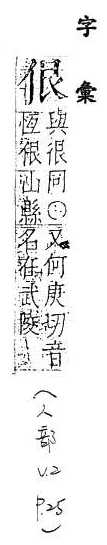 字彙
佷
與很同○又何庚切音
恆佷山縣名在武陵
(人部 V.2 P.25)